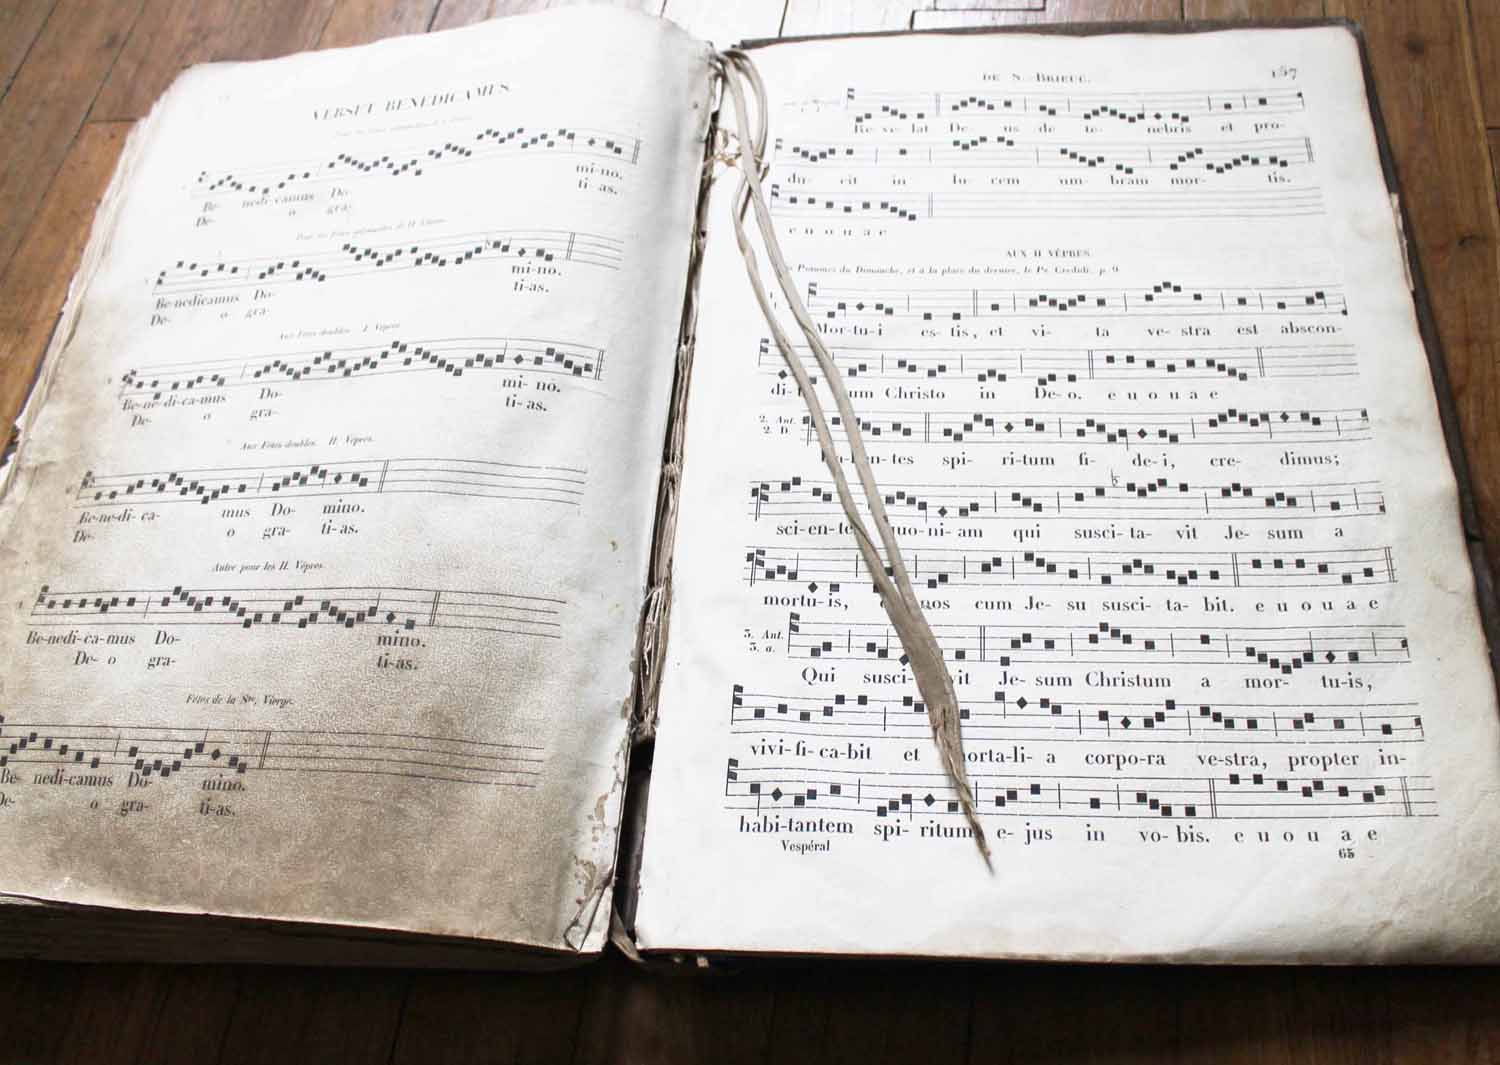 VERSET BENEDICAMUS.
Be- nedi-camus Do- mi-no.
De- o gra- ti-as.
Pour les Fêtes solennelles de II. Classe.
Be-nedicamus Do- mi-no.
De- o gra- ti-as.
Aux Fêtes doubles. I. Vêpres.
Be-ne-di-ca-mus Do- mi- no.
De- o gra- ti-as.
Aux Fêtes doubles. II. Vêpres.
Be-ne-di- ca- mus Do- mino.
De- o gra- ti-as.
Autre pour les II. Vêpres.
Be-nedi-ca-mus Do- mino.
De- o gra- ti-as.
Fêtes de la Ste. Vierge.
Be- nedi-camus Do- mino.
De- o gra- ti-as.
DE S. BRIEUC. 157
Re- ve- lat De- us de te- nebris et pro-
du- cit in lu- cem um- bram mor- tis.
e u o u a e
AUX II VÊPRES.
Psaumes du Dimanche, et à la place du dernier, le Ps. Credidi, p. 9.
1.
Mor-tu-i es-tis, et vi- ta ve- stra est abscon-
di- um Christo in De- o. e u o u a e
2. Ant.
2. D.
ben-tes spi- ri-tum fi- de-i, cre- dimus;
sci-en-te quo-ni-am qui susci- ta- vit Je- sum a
mortu-is, nos cum Je- su susci- ta- bit. e u o u a e
3. Ant.
3. a.
Qui susci- vit Je- sum Christum a mor- tu-is,
vivi-fi-ca-bit et mortali- a corpo-ra ve-stra, propter in-
habi-tantem spi- ritum e- jus in vo-bis. e u o u a e
Vespéral 65